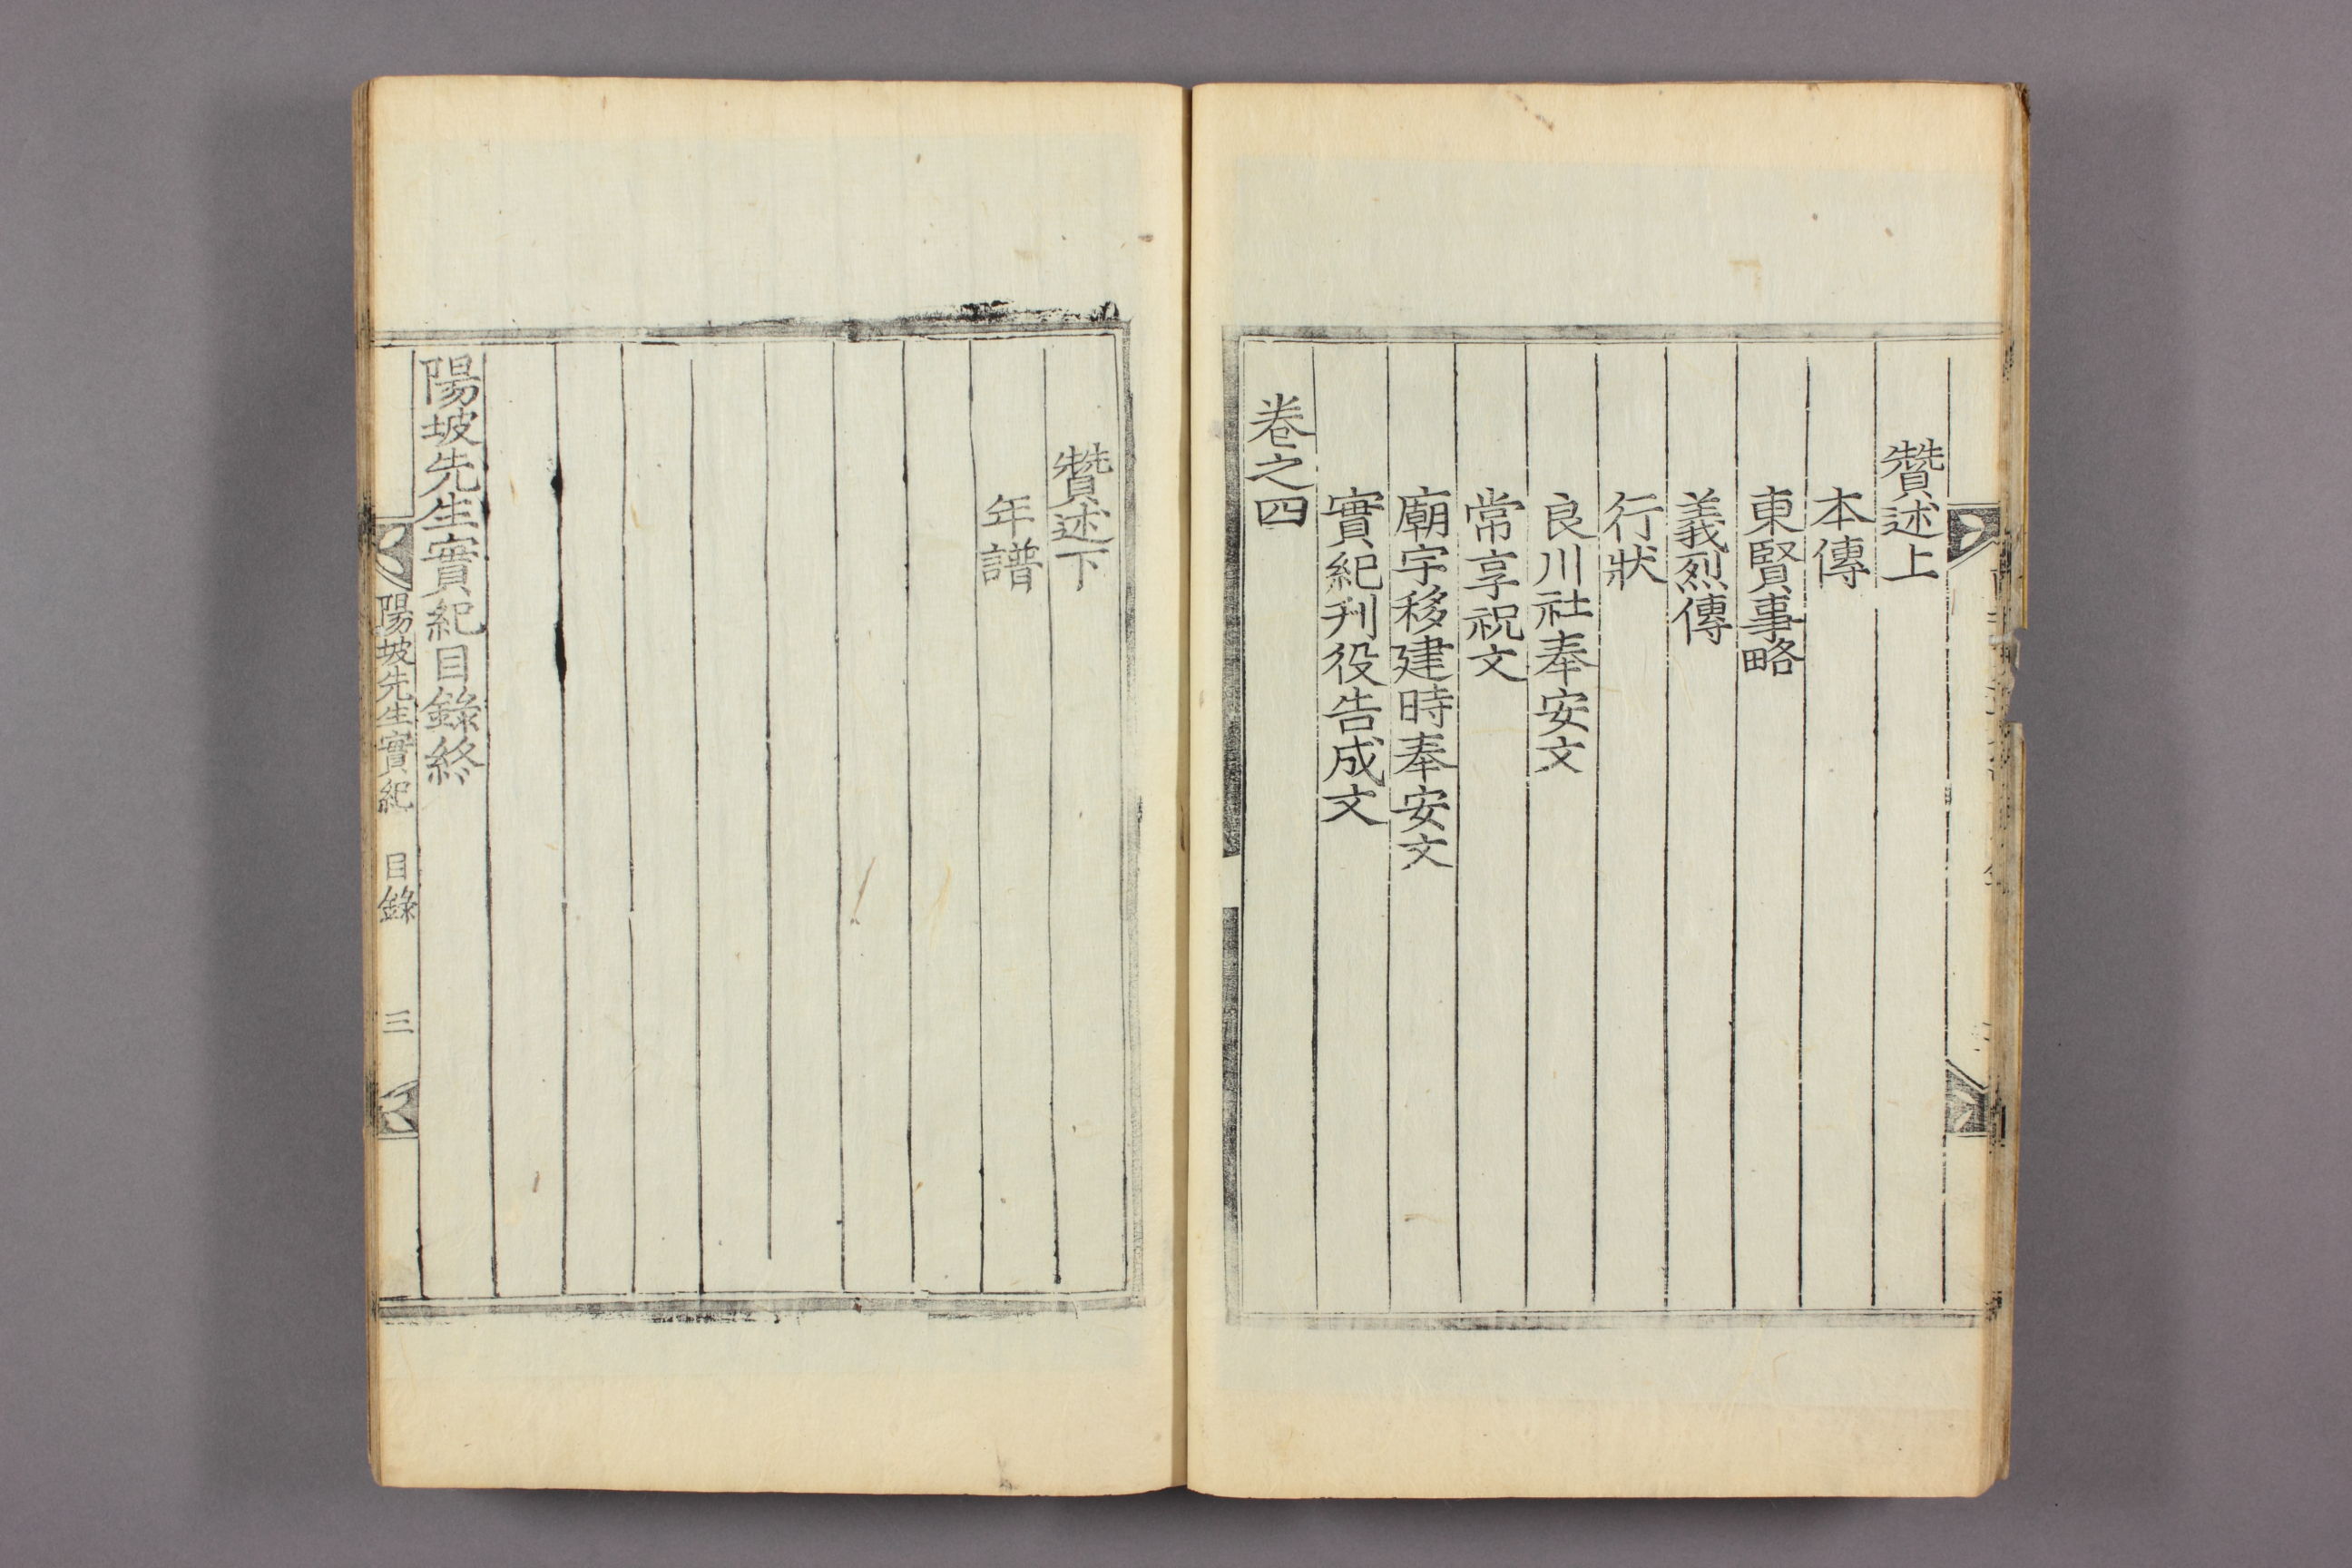 贊述上
本傳
東賢事略
義烈傳
行狀
良川社奉安文
常享祝文
廟宇移建時奉安文
實紀刋役告成文
卷之四
贊述下
年譜
陽坡先生實紀目錄終
陽坡先生實紀 目錄 三